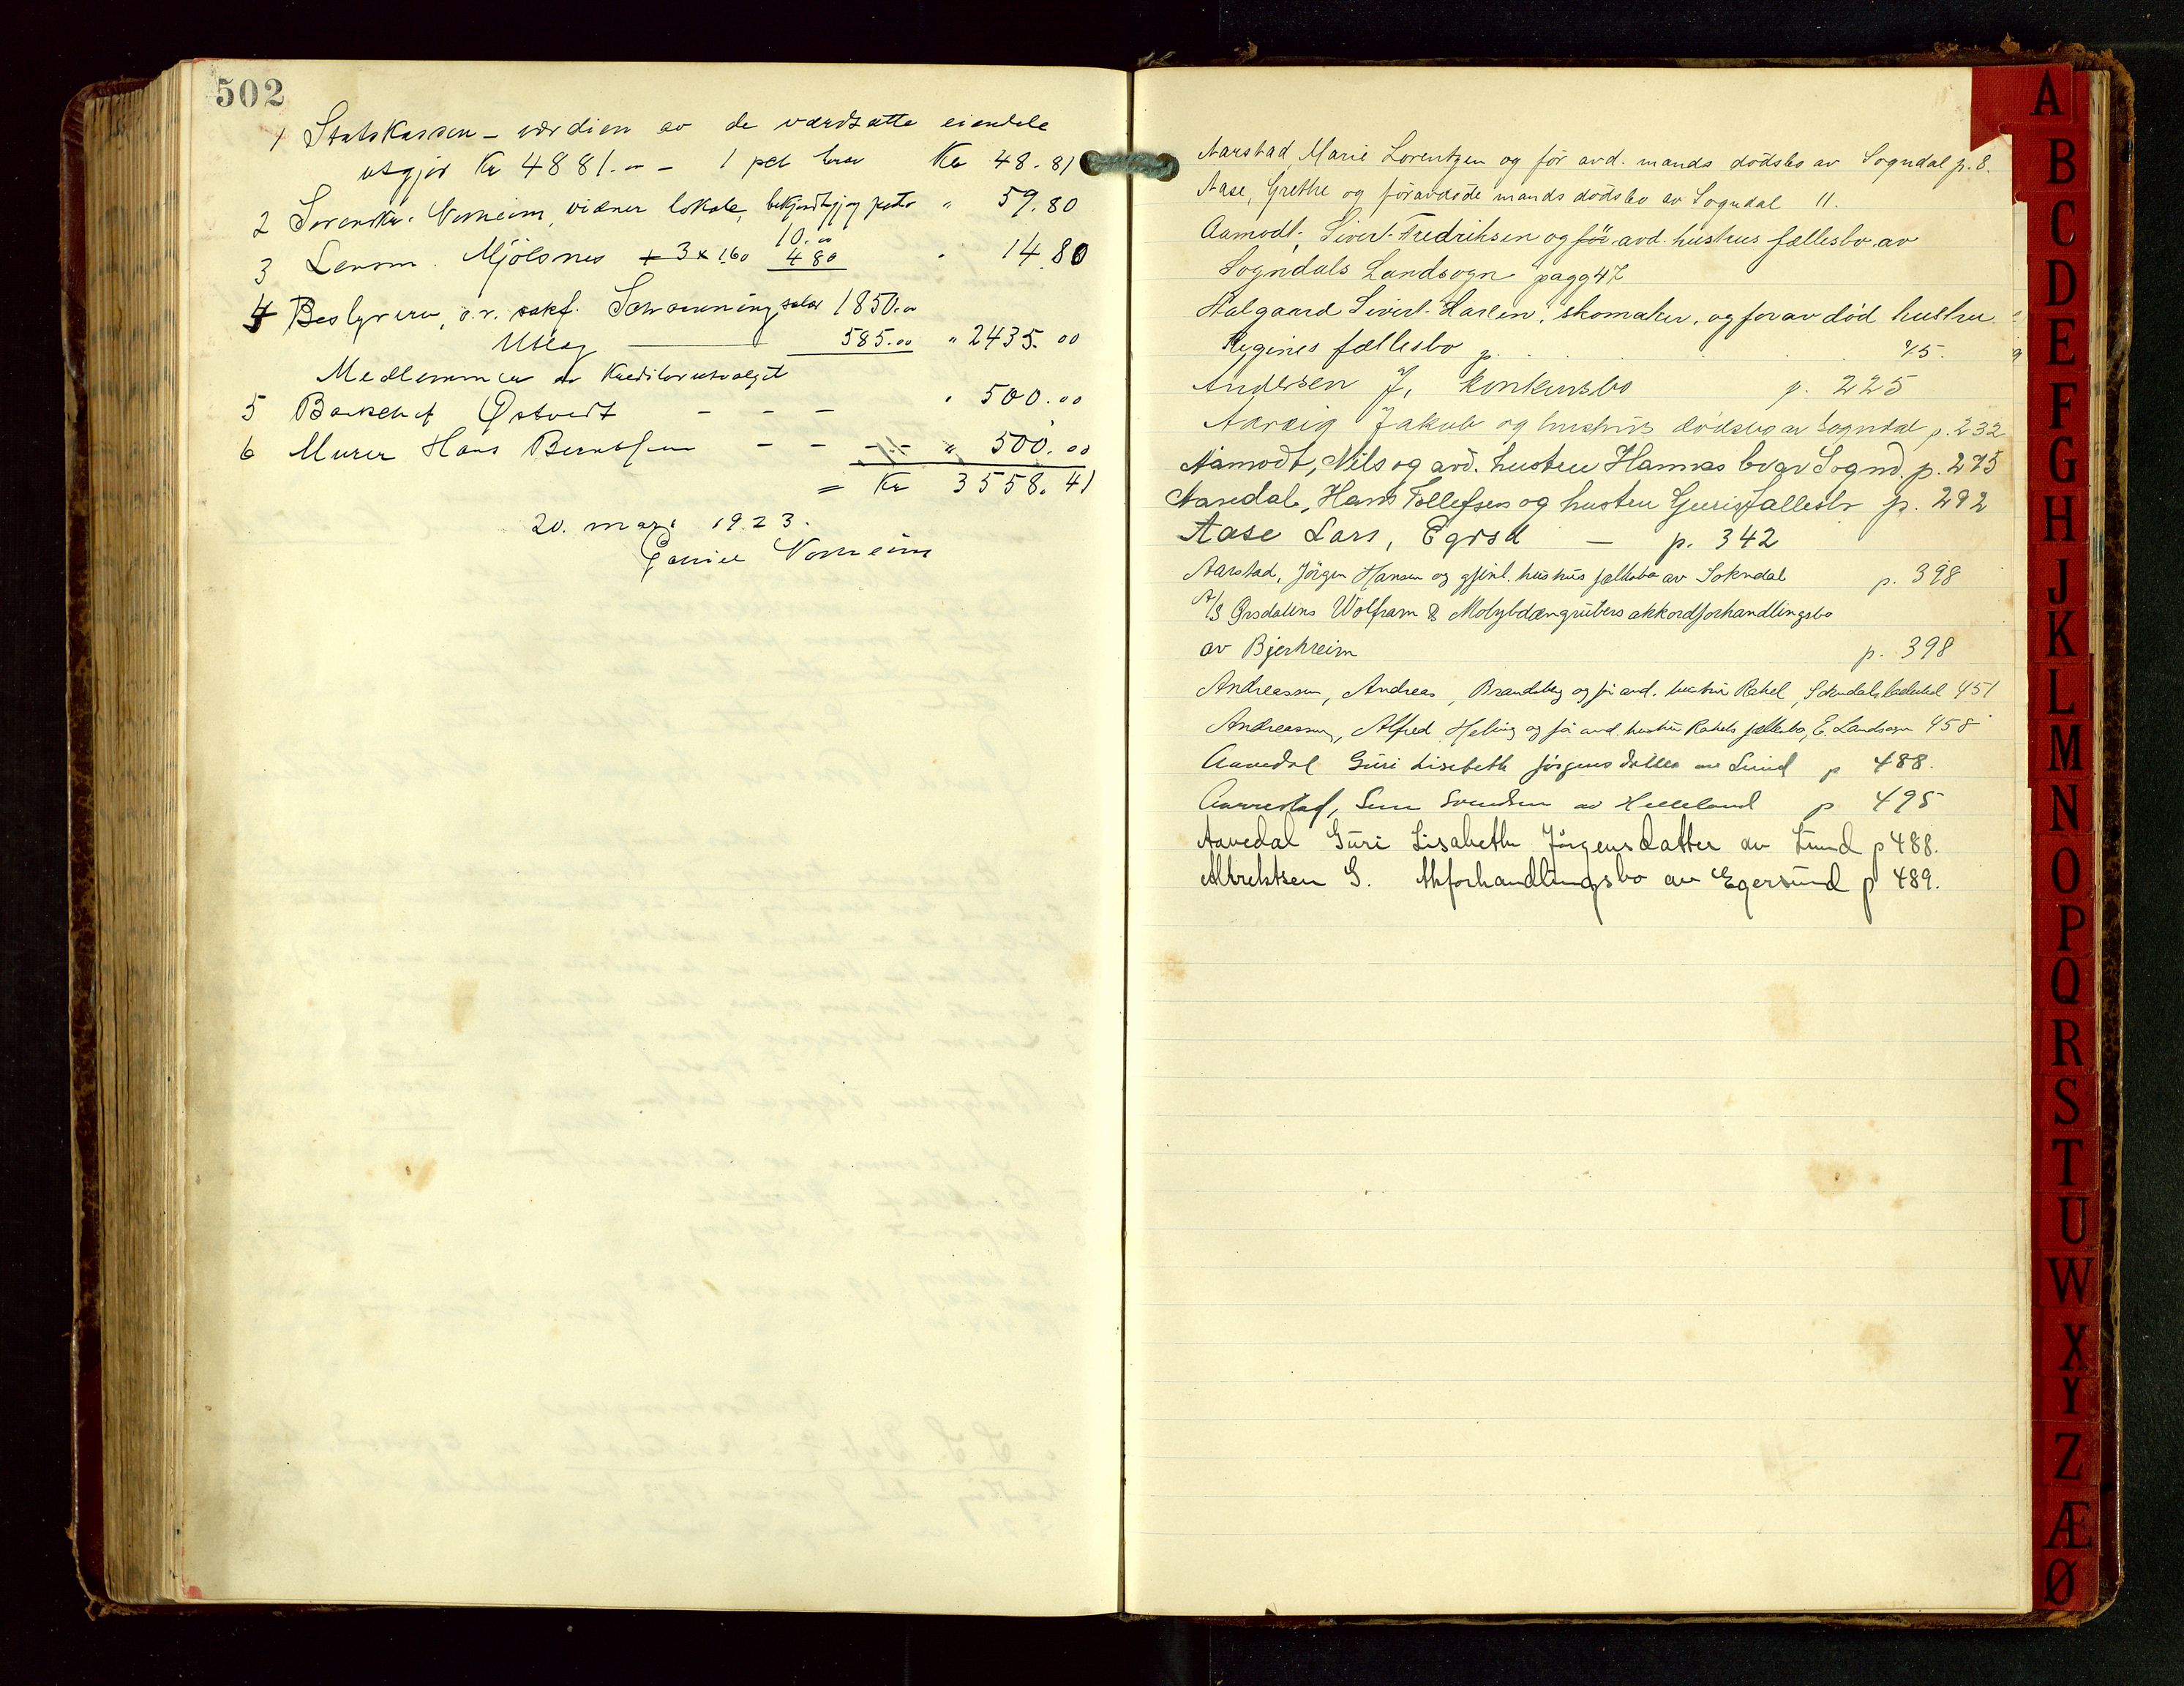 502
1 Statskassen - værdien av de værdsatte eiendele
utgjør Kr 4881.00 - 1 pct herav Kr 48.81
2 Sorenskr. Norheim, vidner lokale, bekjendtgj og porto " 59.80
10.00
3 Lensm. Mjölsnes + 3 x 1.60 4 80 " 14.80
4 Bestyreren, o.r. sakf. Schwenning salær 1850.00
Utlæg 585.00 " 2435.00
Medlemmer av Kreditorutvalget
5 Banksjef Østvedt - - - " 500.00
6 Murer Hans Berntsen - - - " 500.00
= Kr 3558.41
20. mars 1923.
Norheim
Aarstad, Marie Lorentzen og för avd. mands dödsbo av Sogndal p. 8.
Aase, Grethe og föravdöde mands dödsbo av Sogndal 11.
Aamodt, Sivert Fredriksen og för avd. hustrus fællesbo av
Sogndals Landsogn pagg 47
Aalgaard Sivert Karlsen, skomaker, og foravdöd hustru
Regines fællesbo p. . . . . . 75.
Andersen J, konkursbo p. 225
Aarvig Jakob og hustrus dödsbo av Sogndal p. 232
Aamodt, Nils og avd. hustru Hannas bo av Sognd. p. 275
Aavedal, Hans Tollefsen og hustru Guris fællesbo p. 292
Aase Lars, Egrsd — p. 342
Aarstad, Jörgen Hansen og gjenl. hustrus fællesbo av Sokndal p. 398
A/S Örsdalens Wolfram & Molybdængrubers akkordforhandlingsbo
av Bjerkreim p. 398
Andreassen, Andreas, Brandsberg og för avd. hustru Rakel, Sokndals ladested 451
Andreassen, Alfred Heling og för avd. hustru Rakels fællesbo, E. Landsogn 458
Aavedal Guri Lisebeth Jörgensdatter av Lund p 488.
Aarrestad, Svendsen av Helleland p 495
Aavedal Guri Lisabeth Jörgensdatter av Lund p 488.
Albrektsen G. Akforhandlingsbo av Egersund p 489.
A
B
C
D
E
F
G
H
J
K
L
M
N
O
P
Q
R
S
T
U
W
X
Y
Z
Æ
Ø